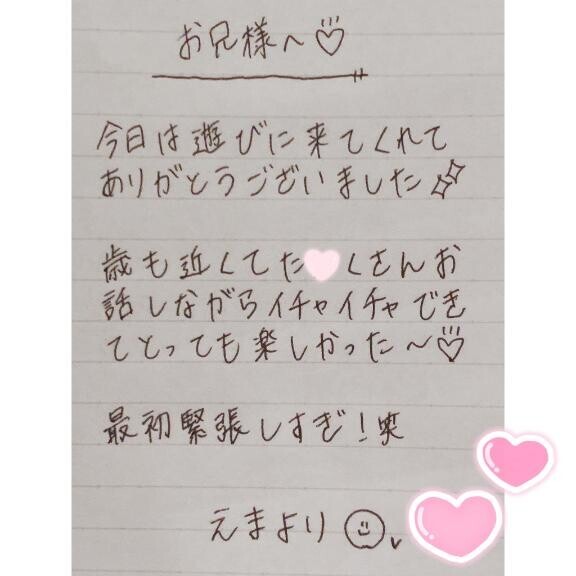 お兄様へ♡
今日は遊びに来てくれて
ありがとうございました
歳も近くてたくさんお
話しながらイチャイチャでき
てとっても楽しかった〜♡
最初緊張しすぎ!笑
えまより